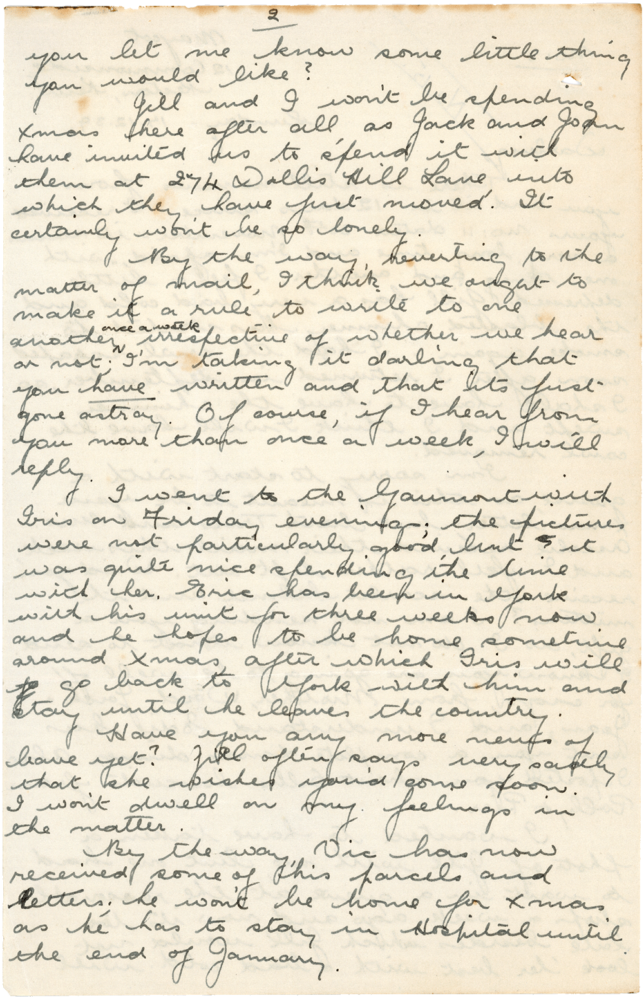 2
you let me know some little thing
you would like?
Jill and I won't be spending
Xmas here after all as Jack and Joan
have invited us to spend it with
them at 274 Dollis Hill Lane into
which they have just moved. It
certainly won't be so lonely.
By the way, reverting to the
matter of mail, I think we ought to
make it a rule to write to one
another once a week irrespective of whether we hear
or not; I'm taking it darling that
you have written and that its just
gone astray. Of course, if I hear from
you more than once a week, I will
reply.
I went to the Gaumont with
Iris on Friday evening; the pictures
were not particularly good, but it
was quite nice spending the time
with her. Eric has been in York
with his unit for three weeks now
and he hopes to be home sometime
around Xmas, after which Iris will
go back to York with him and
stay until he leaves the country.
Have you any more news of
leave yet? Jill often says very sadly
that she wishes you'd come soon.
I won't dwell on my feelings in
the matter.
By the way, Vic has now
received some of his parcels and
letters; he won't be home for Xmas
as he has to stay in Hospital until
the end of January.